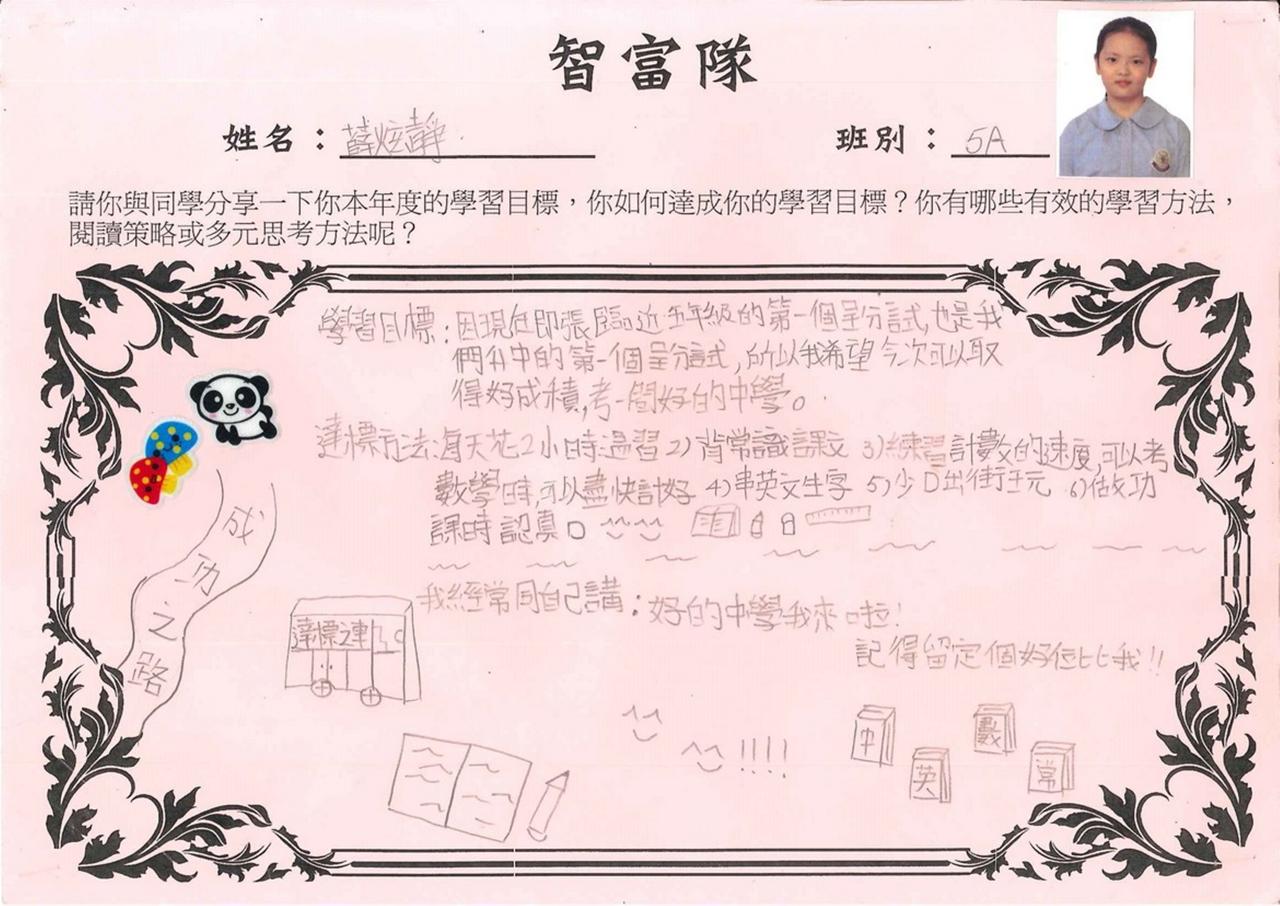 智富隊
姓名：薛炫靜
班別：5A
請你與同學分享一下你本年度的學習目標，你如何達成你的學習目標？你有哪些有效的學習方法，
閱讀策略或多元思考方法呢？
學習目標：因現在即張臨近五年級的第一個呈分試，也是我
們升中的第一個呈分試，所以我希望今次可以取
得好成積，考一間好的中學。
達標方法：每天花2小時溫習 2) 背常識課文 3) 練習計數的速度，可以考
數學時，可以盡快計好 4) 串英文生字 5) 少D出街玩 6) 做功
課時認真。
我經常同自己講：好的中學我來啦！
記得留定個好位比我！！
成功之路
達標之車
!!!!
中
英
數
常